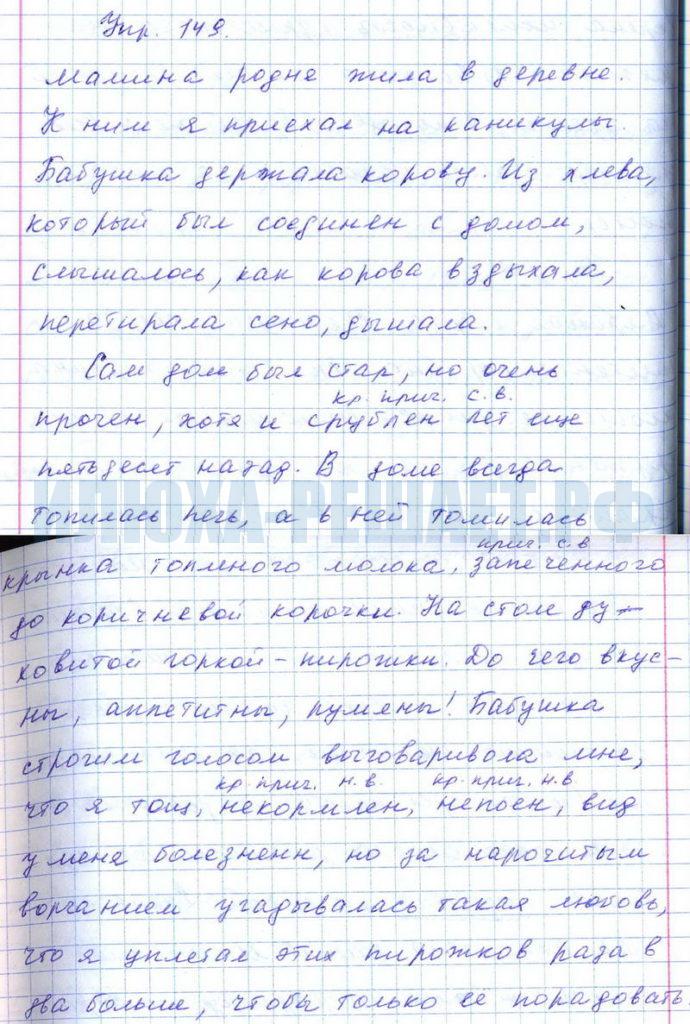 Упр. 149.
Мамина родня жила в деревне.
К ним я приехал на каникулы.
Бабушка держала корову. Из хлева,
который был соединен с домом,
слышалось, как корова вздыхала,
перетирала сено, дышала.
Сам дом был стар, но очень
кр. прич. с.в.
прочен, хотя и срублен лет еще
пятьдесят назад. В доме всегда
ИЛЮХА-РЕШАЕТ.РФ
топилась печь, а в ней томилась
прич. с.в
крынка топленого молока, запеченного
до коричневой корочки. На столе ду-
ховитой горкой - пирожки. До чего вкус-
ны, аппетитны, румяны! Бабушка
строгим голосом выговаривала мне,
кр. прич. н.в. кр. прич. н.в
что я тощ, некормлен, непоен, вид
у меня болезненн, но за нарочитым
ворчанием угадывалась такая любовь,
что я уплетал этих пирожков раза в
два больше, чтобы только ее порадовать.